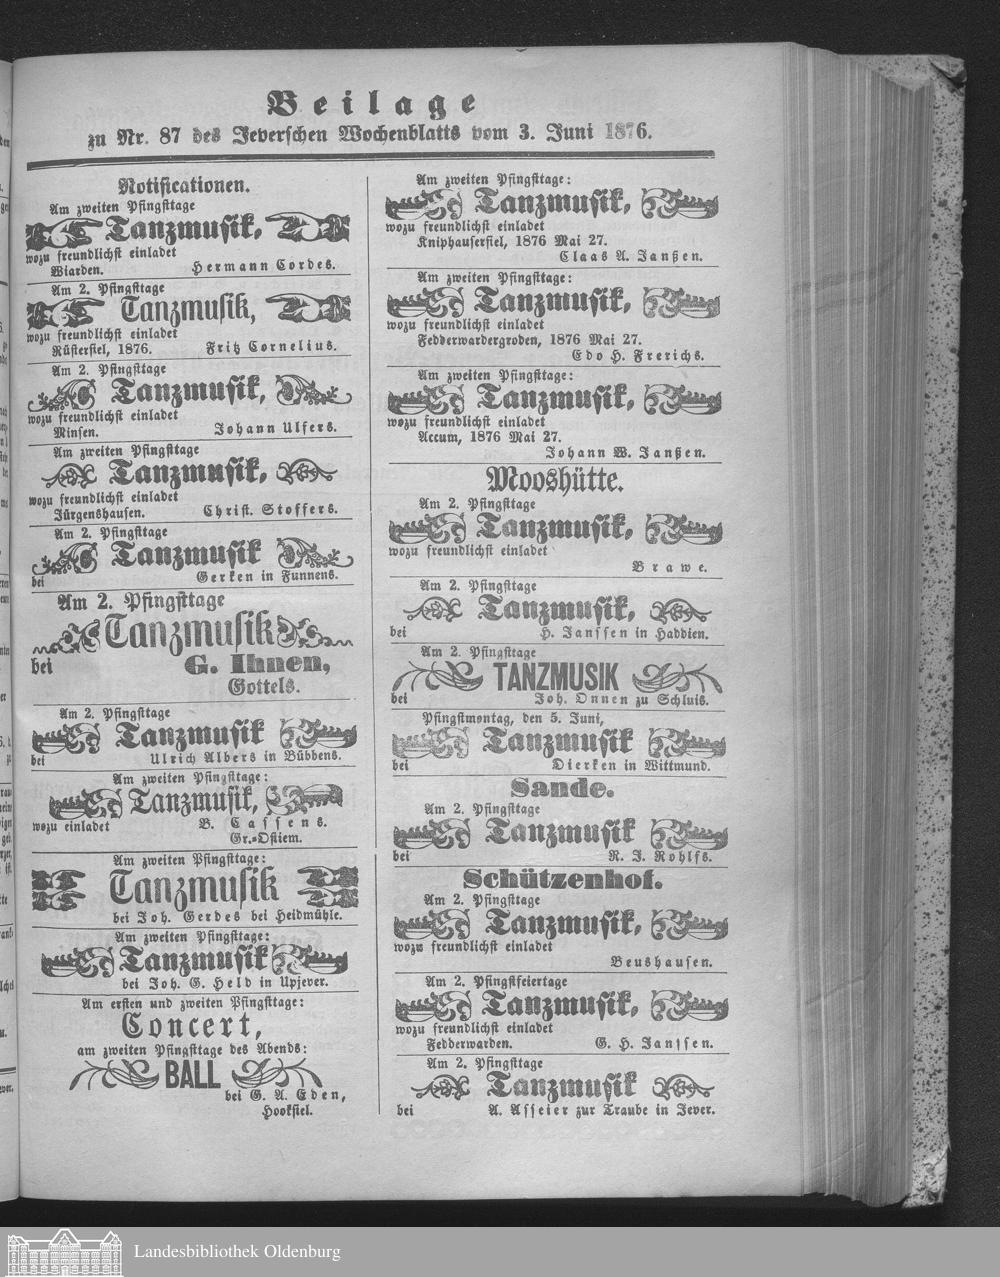 Beilage
zu Nr. 87 des Jeverschen Wochenblatts vom 3. Juni 1876.
Notificationen.
Am zweiten Pfingsttage
Tanzmusik,
wozu freundlichst einladet
Wiarden. Hermann Cordes.
Am 2. Pfingsttage
Tanzmusik,
wozu freundlichst einladet
Rüstersiel, 1876. Fritz Cornelius.
Am 2. Pfingsttage
Tanzmusik,
wozu freundlichst einladet
Minsen. Johann Ulfers.
Am zweiten Pfingsttage
Tanzmusik,
wozu freundlichst einladet
Jürgenshausen. Christ. Stoffers.
Am 2. Pfingsttage
Tanzmusik
bei Gerken in Funnens.
Am 2. Pfingsttage
Tanzmusik
bei G. Ihnen,
Gottels.
Am 2. Pfingsttage
Tanzmusik
bei Ulrich Albers in Bübbens.
Am zweiten Pfingsttage:
Tanzmusik,
wozu einladet B. Cassens.
Gr.-Ostiem.
Am zweiten Pfingsttage:
Tanzmusik
bei Joh. Gerdes bei Heidmühle.
Am zweiten Pfingsttage:
Tanzmusik
bei Joh. G. Held in Upjever.
Am ersten und zweiten Pfingsttage:
Concert,
am zweiten Pfingsttage des Abends:
BALL
bei G. A. Eden,
Hooksiel.
Am zweiten Pfingsttage:
Tanzmusik,
wozu freundlichst einladet
Kniphausersiel, 1876 Mai 27.
Claas A. Janßen.
Am zweiten Pfingsttage:
Tanzmusik,
wozu freundlichst einladet
Fedderwardergroden, 1876 Mai 27.
Edo H. Frerichs.
Am zweiten Pfingsttage:
Tanzmusik,
wozu freundlichst einladet
Accum, 1876 Mai 27.
Johann W. Janßen.
Mooshütte.
Am 2. Pfingsttage
Tanzmusik,
wozu freundlichst einladet
Brawe.
Am 2. Pfingsttage
Tanzmusik,
bei H. Janssen in Haddien.
Am 2. Pfingsttage
TANZMUSIK
bei Joh. Onnen zu Schluis.
Pfingstmontag, den 5. Juni,
Tanzmusik
bei Dierken in Wittmund.
Sande.
Am 2. Pfingsttage
Tanzmusik
bei R. J. Rohlfs.
Schützenhof.
Am 2. Pfingsttage
Tanzmusik,
wozu freundlichst einladet
Beushausen.
Am 2. Pfingstfeiertage
Tanzmusik,
wozu freundlichst einladet
Fedderwarden. G. H. Janssen.
Am 2. Pfingsttage
Tanzmusik
bei A. Asseier zur Traube in Jever.
Landesbibliothek Oldenburg